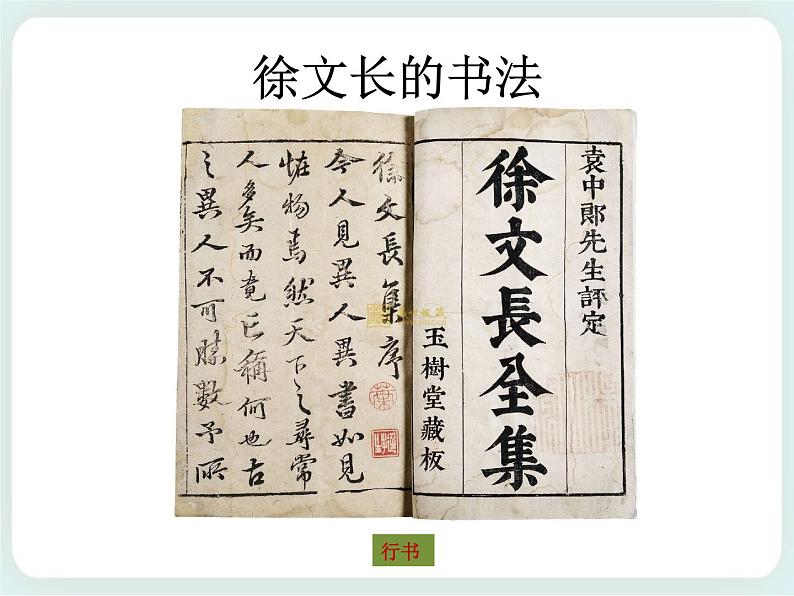 徐文长的书法
袁中郎先生評定
徐文長全集
玉樹堂藏板
徐文長集序
今人見異人異書如見
恠物焉然天下之尋常
人多矣而竟已稱何也古
之異人不可勝數予所
行书